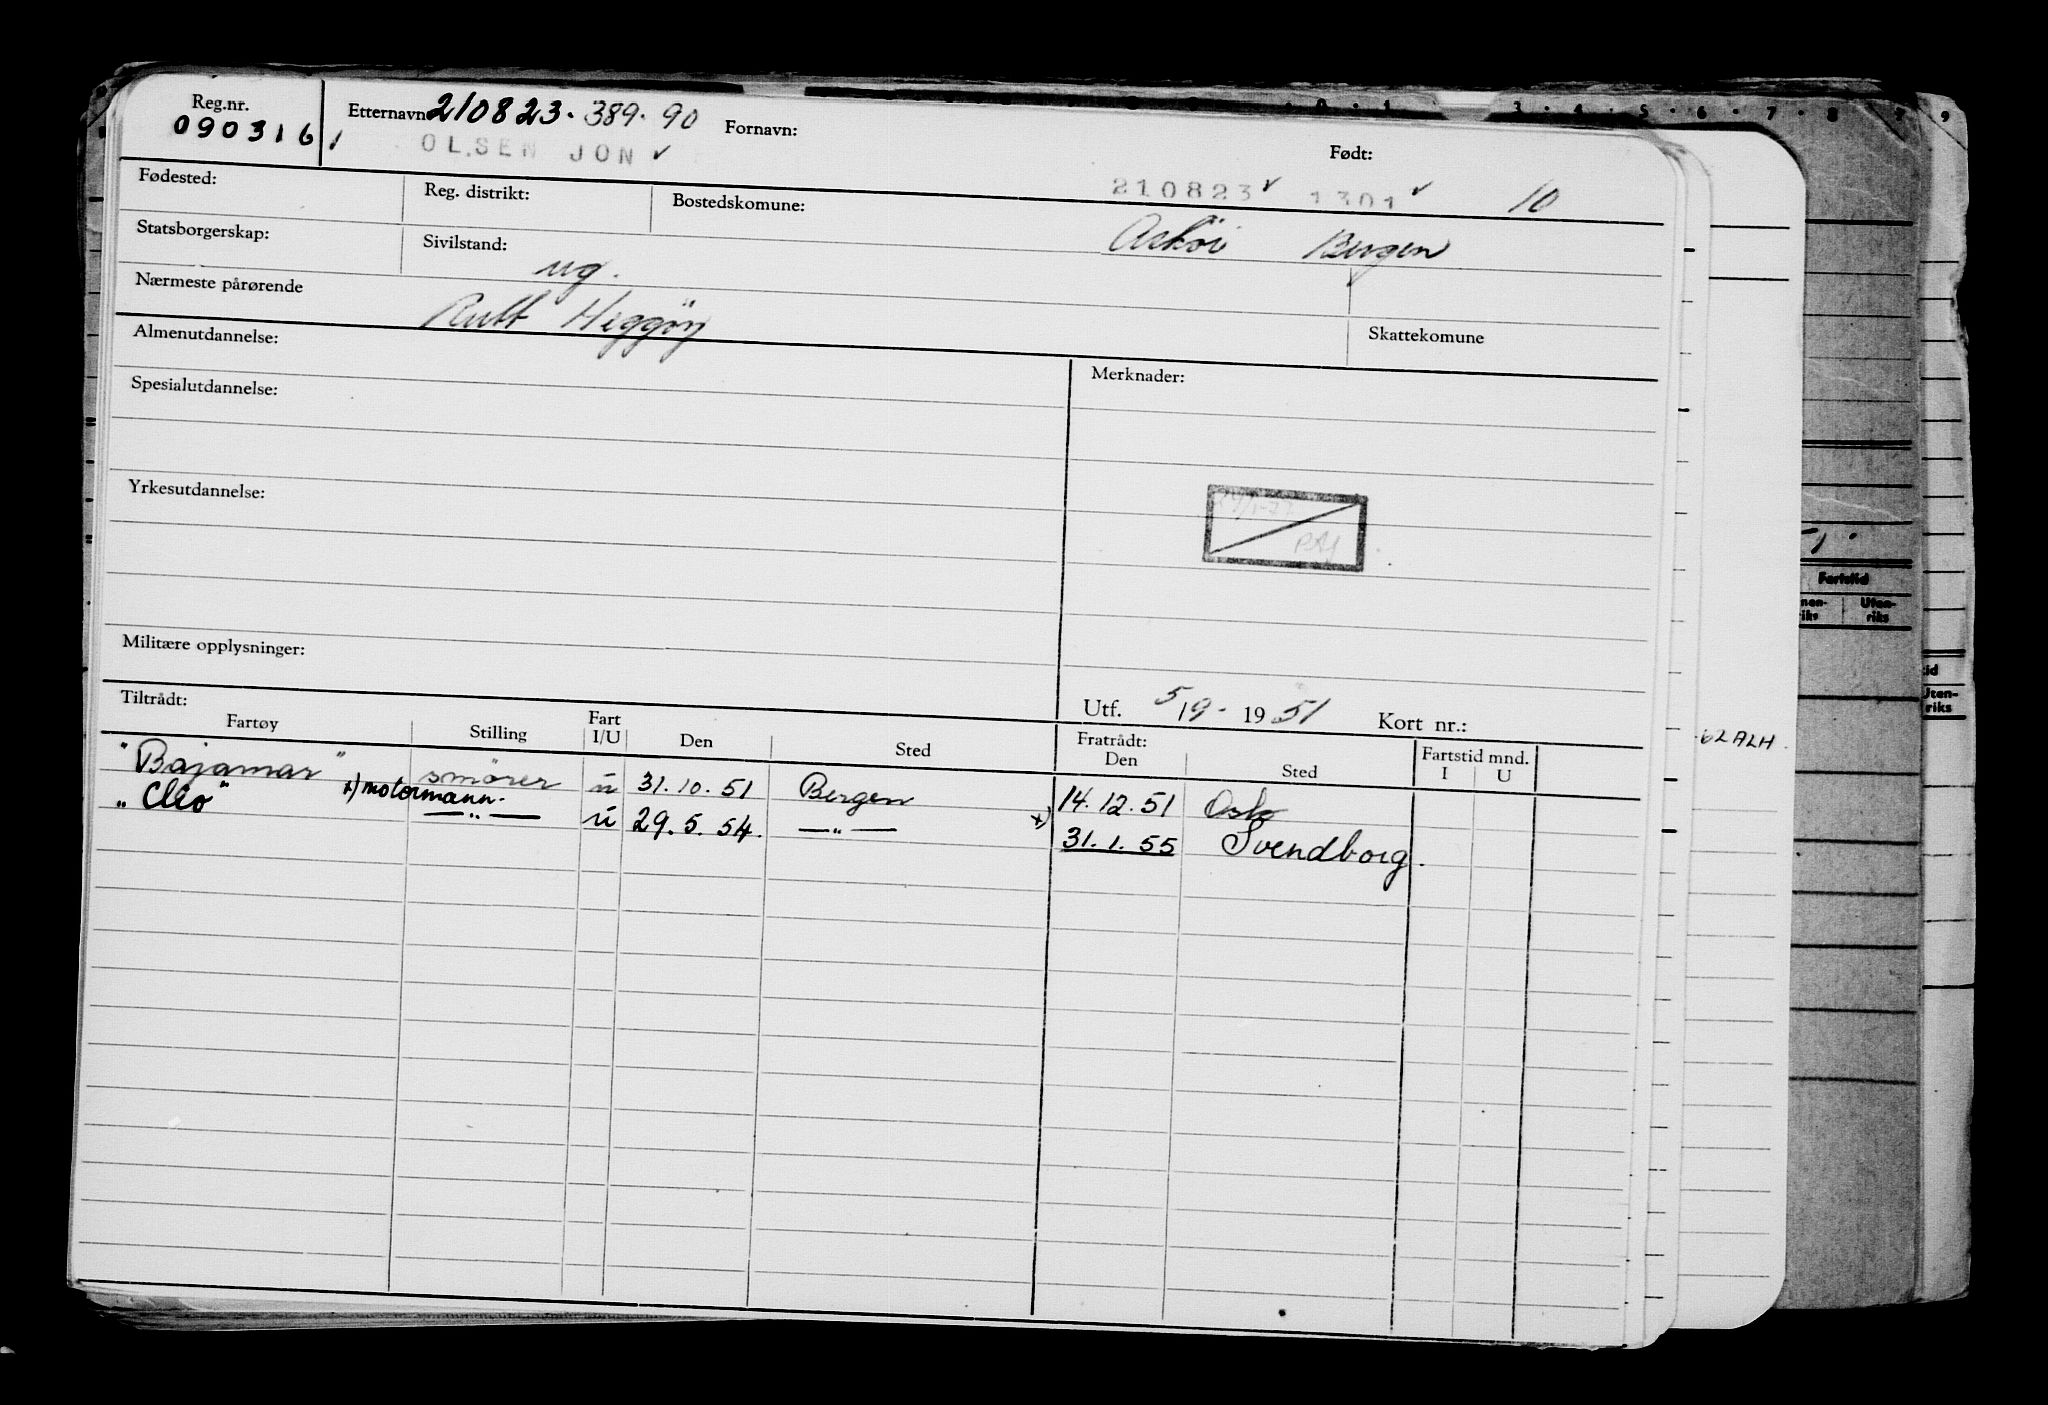 Reg.nr. Etternavn 210823. 389. 90 Fornavn: Født:
0903161 OLSEN JON ✓ 210823 ✓ 1301 ✓ 10
Fødested: Reg. distrikt: Bostedskomune: Askøi Bergen
Statsborgerskap: Sivilstand: ug.
Nærmeste pårørende Rutt Heggöy Skattekomune
Almenutdannelse: Merknader:
Spesialutdannelse:
Yrkesutdannelse:
Militære opplysninger:
Tiltrådt: Utf. 5/9- 1951 Kort nr.:
Fartøy Stilling Fart I/U Den Sted Fratrådt: Den Sted Fartstid mnd. I U
"Bajamar" smører u 31.10.51 Bergen 14.12.51 Oslo
x) motormann.
"Cleo" —"— u 29.5.54. —"— x) 31.1.55 Svendborg.
0 · 1 3 · 4 · 5 · 6 · 7 · 8 9
Fartstid
Uten-
riks
62 ALH.